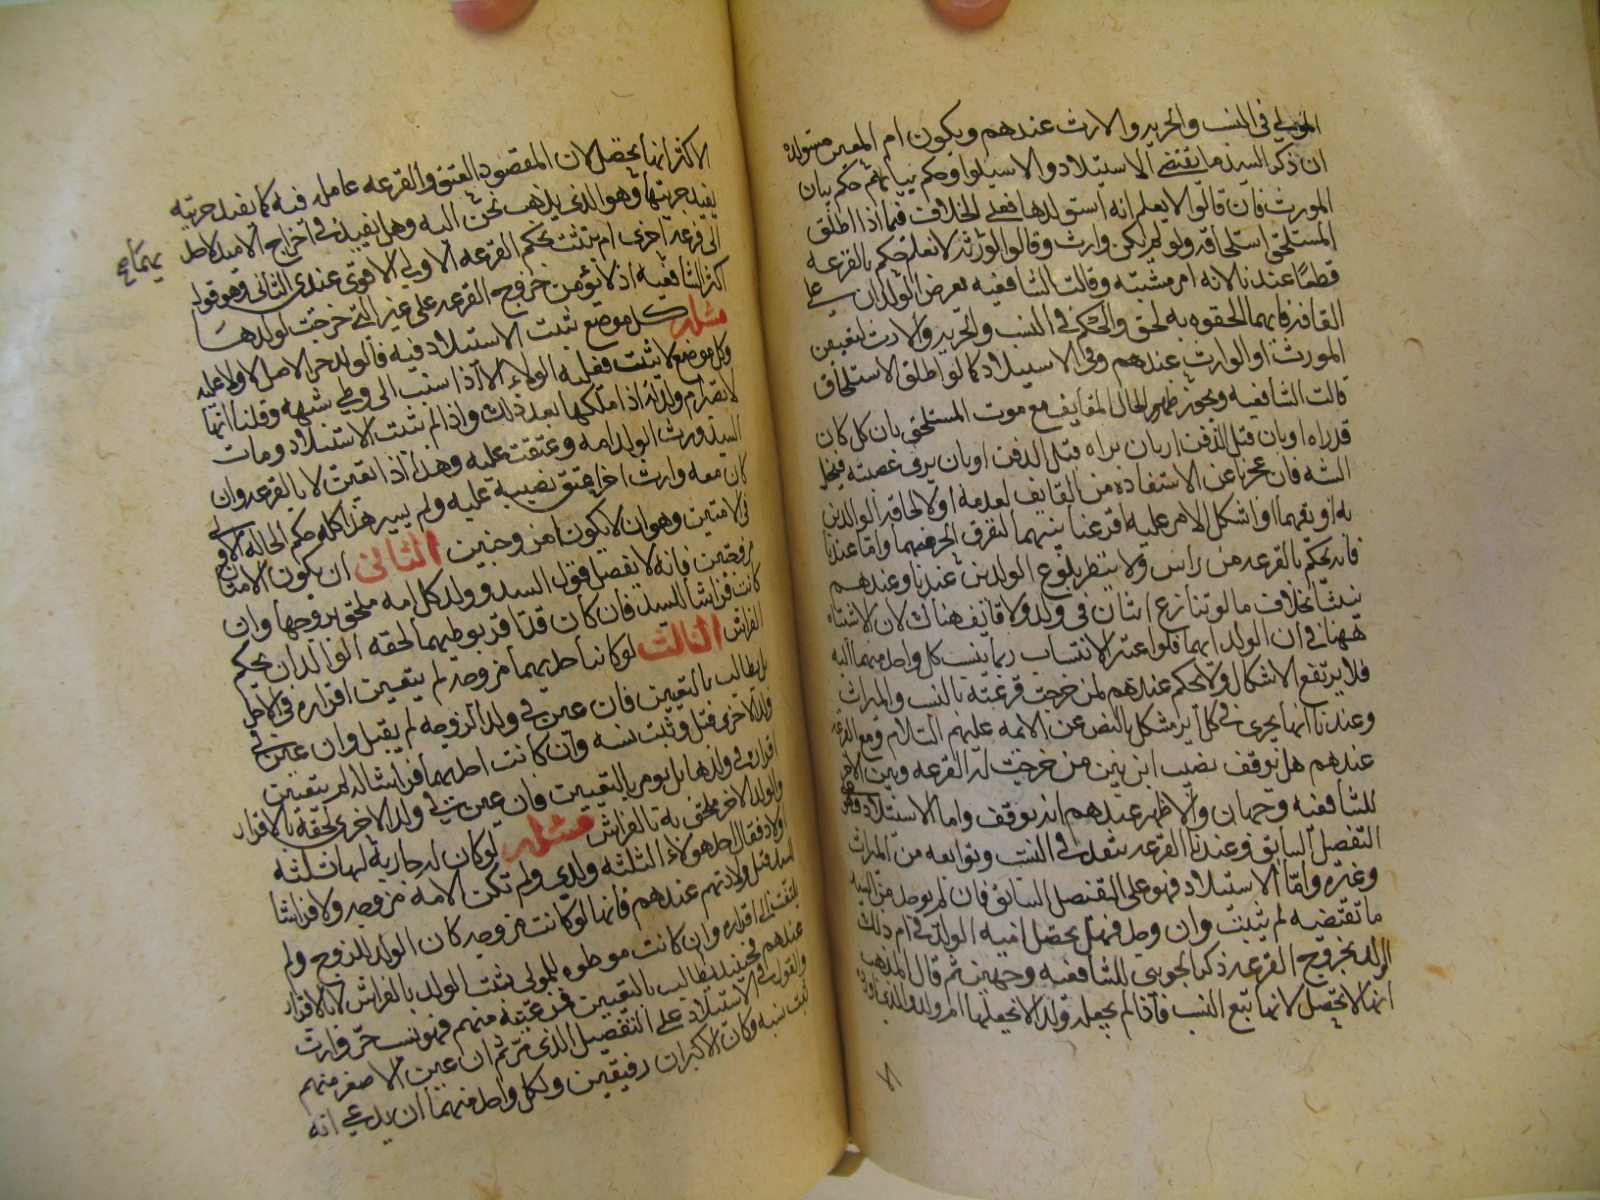 المولى في النسب والحرية والارث عندهم ويكون ام المعين مستولده
ان ذكر السيد ما يقتضي الاستيلاد والا سيلوا وحكم بيانهم حكم بيان
المورث فان قالوا لا يعلم انه استولدها فعلى الخلاف فيما اذا اطلق
المستلحق استلحاقه ولو لم يكن وارث وقالوا الورثة لا نعلم حكم بالقرعه
قطعا عندنا لانه امر مشتبه وقالت الشافعيه يعرض الولدان على
القافه فايهما الحقوه به لحق والحكم في النسب والحرية والارث كتعيين
المورث او الوارث عندهم وفي الاستيلاد كما لو اطلق الاستلحاق
قالت الشافعيه ويجوز ظهور الحال للقايف مع موت المستلحق بان كل كان
قد راه او بان قبل الدفن او بان يراه قبل الدفن او بان يرى عصبته فيجد
الشبه فان عجزنا عن الاستفاده من القايف لعدمه او لالحاقه الولدين
به او نفيهما او اشكل الامر عليه اقرعنا بينهما لنعرف الحر منهما واما عندنا
فانه يحكم بالقرعه من راس ولا ينتظر بلوغ الولدين عندنا وعندهم
بخلاف ما لو تنازع اثنان في ولد ولا قايف هناك لان الاشتباه
ههنا في ان الولد ايهما فلو اعتبر الانتساب ربما ينتسب كل واحد منهما اليه
فلا يرتفع الاشكال ولا يحكم عندهم لمن خرجت قرعته بالنسب والميراث
وعندنا انها يجري في كل امر مشكل بالنص عن الائمه عليهم السلام ومع القرعه
عندهم هل يوقف نصيب ابن بين من خرجت له القرعه وبين الاخر
للشافعيه وجهان والاظهر عندهم انه يوقف واما الاستيلاد فهو على
التفصيل السابق وعندنا القرعه ينفذ في النسب وتوابعه من الميراث
وغيره واما الاستيلاد فهو على التفصيل السابق فان لم يوجد من السيد
ما يقتضيه لم يثبت وان وجد فهل يحصل اميه الولد في ام ذلك
الولد بخروج القرعه ذكر الجويني للشافعيه وجهين ثم قال المذهب
انها لا تحصل لانها تتبع النسب فاذا لم يجعله ولدا لا نجعلها ام ولد والذي اورده
الاكثر انها تحصل لان المقصود العتق والقرعه عامله فيه كما يفيد حريته
يفيد حريتها وهو الذي يذهب نحن اليه وهل يفتقر في اخراج الامه لاجل
الى قرعه اخرى ام يثبت بحكم القرعه الاولى الاقوى عندي الثاني وهو قول
اكثر الشافعيه اذ لا يؤمن خروج القرعه على غير التي خرجت لولدها
مسئله كل موضع ثبت الاستيلاد فيه فالولد حر الاصل لا ولاء عليه
وكل موضع لا يثبت فعليه الولاء الا اذا نسب الى وطي شبهه وقلنا انها
لا تصير ام ولد له اذا ملكها بعد ذلك واذا لم يثبت الاستيلاد ومات
السيد ورث الولد امه وعتقت عليه وهذا اذا تعينت لا بالقرعه وان
كان معه وارث اخر عتق نصيبه عليه ولم يسر هذا كله حكم الحاله الاولى
في الامتين وهو ان لا يكون مزوجتين الثاني ان يكون الامتان
مزوجتين فانه لا يفصل قول السيد وولد كل امه ملحق بزوجها وان
كانت فراشا للسيد فان كان قد اقر بوطيهما لحقه الولدان بحكم
الفراش الثالث لو كانت احديهما مزوجه لم يتعين اقراره في الاخرى
بل يطالب بالتعيين فان عين في ولد المزوجه لم يقبل وان عين في
ولد الاخرى قبل وثبت نسبه وان كانت احديهما فراشا له لم يتعين
اقراره في ولدها بل يومر بالتعيين فان عين في ولد الاخرى لحقه بالاقرار
والولد الاخر ملحق به بالفراش مسئله لو كان له جارية لها ثلثه
اولاد فقال احد هولاء الثلثه ولدي ولم تكن الامه مزوجه ولا فراشا
للسيد قبل ولادتهم عندهم فانها لو كانت مزوجه كان الولد للزوج ولم
يلتفت الى اقراره وان كانت موطوه للمولى يثبت الولد بالفراش لا بالاقرار
عندهم فحينئذ يطالب بالتعيين فمن عينه منهم فهو نسيب حر وارث
والقول في الاستيلاد على التفصيل الذي مر ثم ان عين الاصغر منهم
ثبت نسبه وكان الاكبران رقيقين ولكل واحد منهما ان يدعي انه